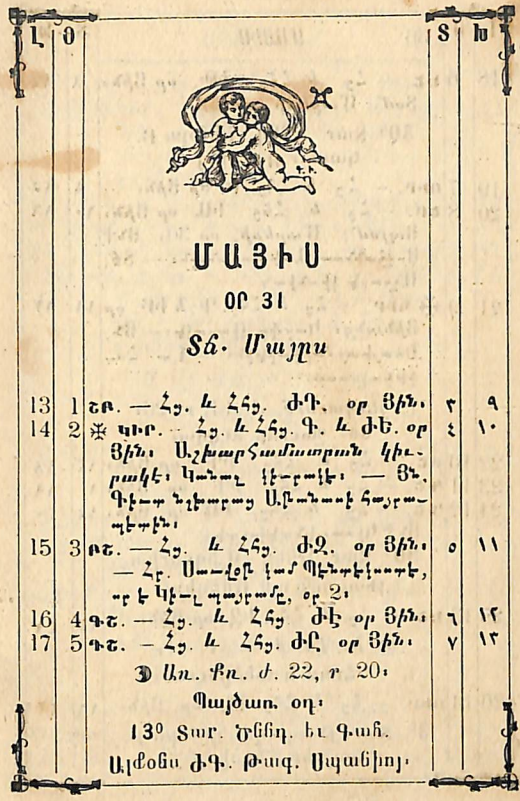 Լ Օ Տ Խ
ՄԱՅԻՍ
ՕՐ 31
Տճ. Մայըս
13 1 ՇԲ. — Հց. և ՀՀց. ԺԴ. օր Յին։ ٣ ٩
14 2 ✠ ԿԻՐ. — Հց. և ՀՀց. Գ. և ԺԵ. օր ٤ ١٠
Յին։ Աշխարհամատրան կիւ-
րակէ։ Կանաչ կիւրակէ։ — Յն.
Գիւտ նշխարաց Աթանասի հայրա-
պետին։
15 3 ԲՇ. — Հց. և ՀՀց. ԺԶ. օր Յին։ ٥ ١١
— Հր. Սավօր կամ Պենտեկոստէ,
որ է Կիւլ պայրամը, օր 2։
16 4 ԳՇ. — Հց. և ՀՀց. ԺԷ օր Յին։ ٦ ١٢
17 5 ԴՇ. — Հց. և ՀՀց. ԺԸ օր Յին։ ٧ ١٣
Առ. Քռ. Ժ. 22, ր 20։
Պայծառ օդ։
13⁰ Տար. Ծննդ. եւ Գահ.
Ալֆօնս ԺԳ. Թագ. Սպանիոյ։